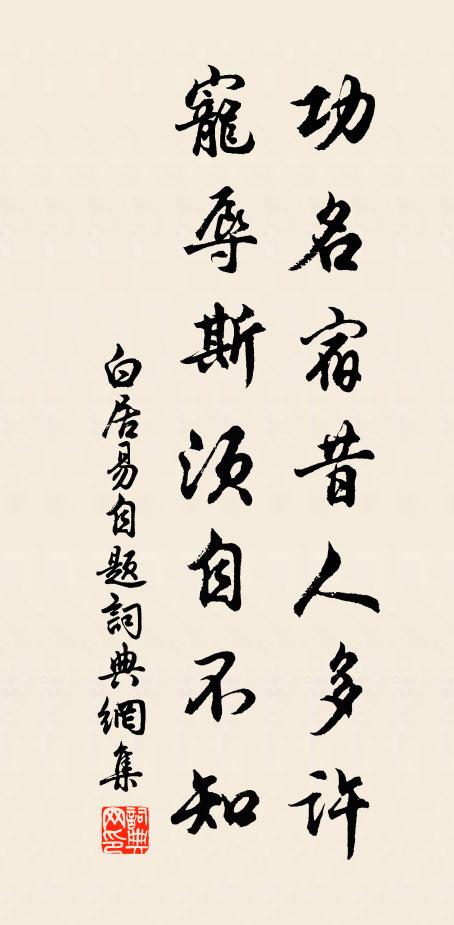 功名宿昔人多許
寵辱斯須自不知
白居易自題詞典網集
詞典網印